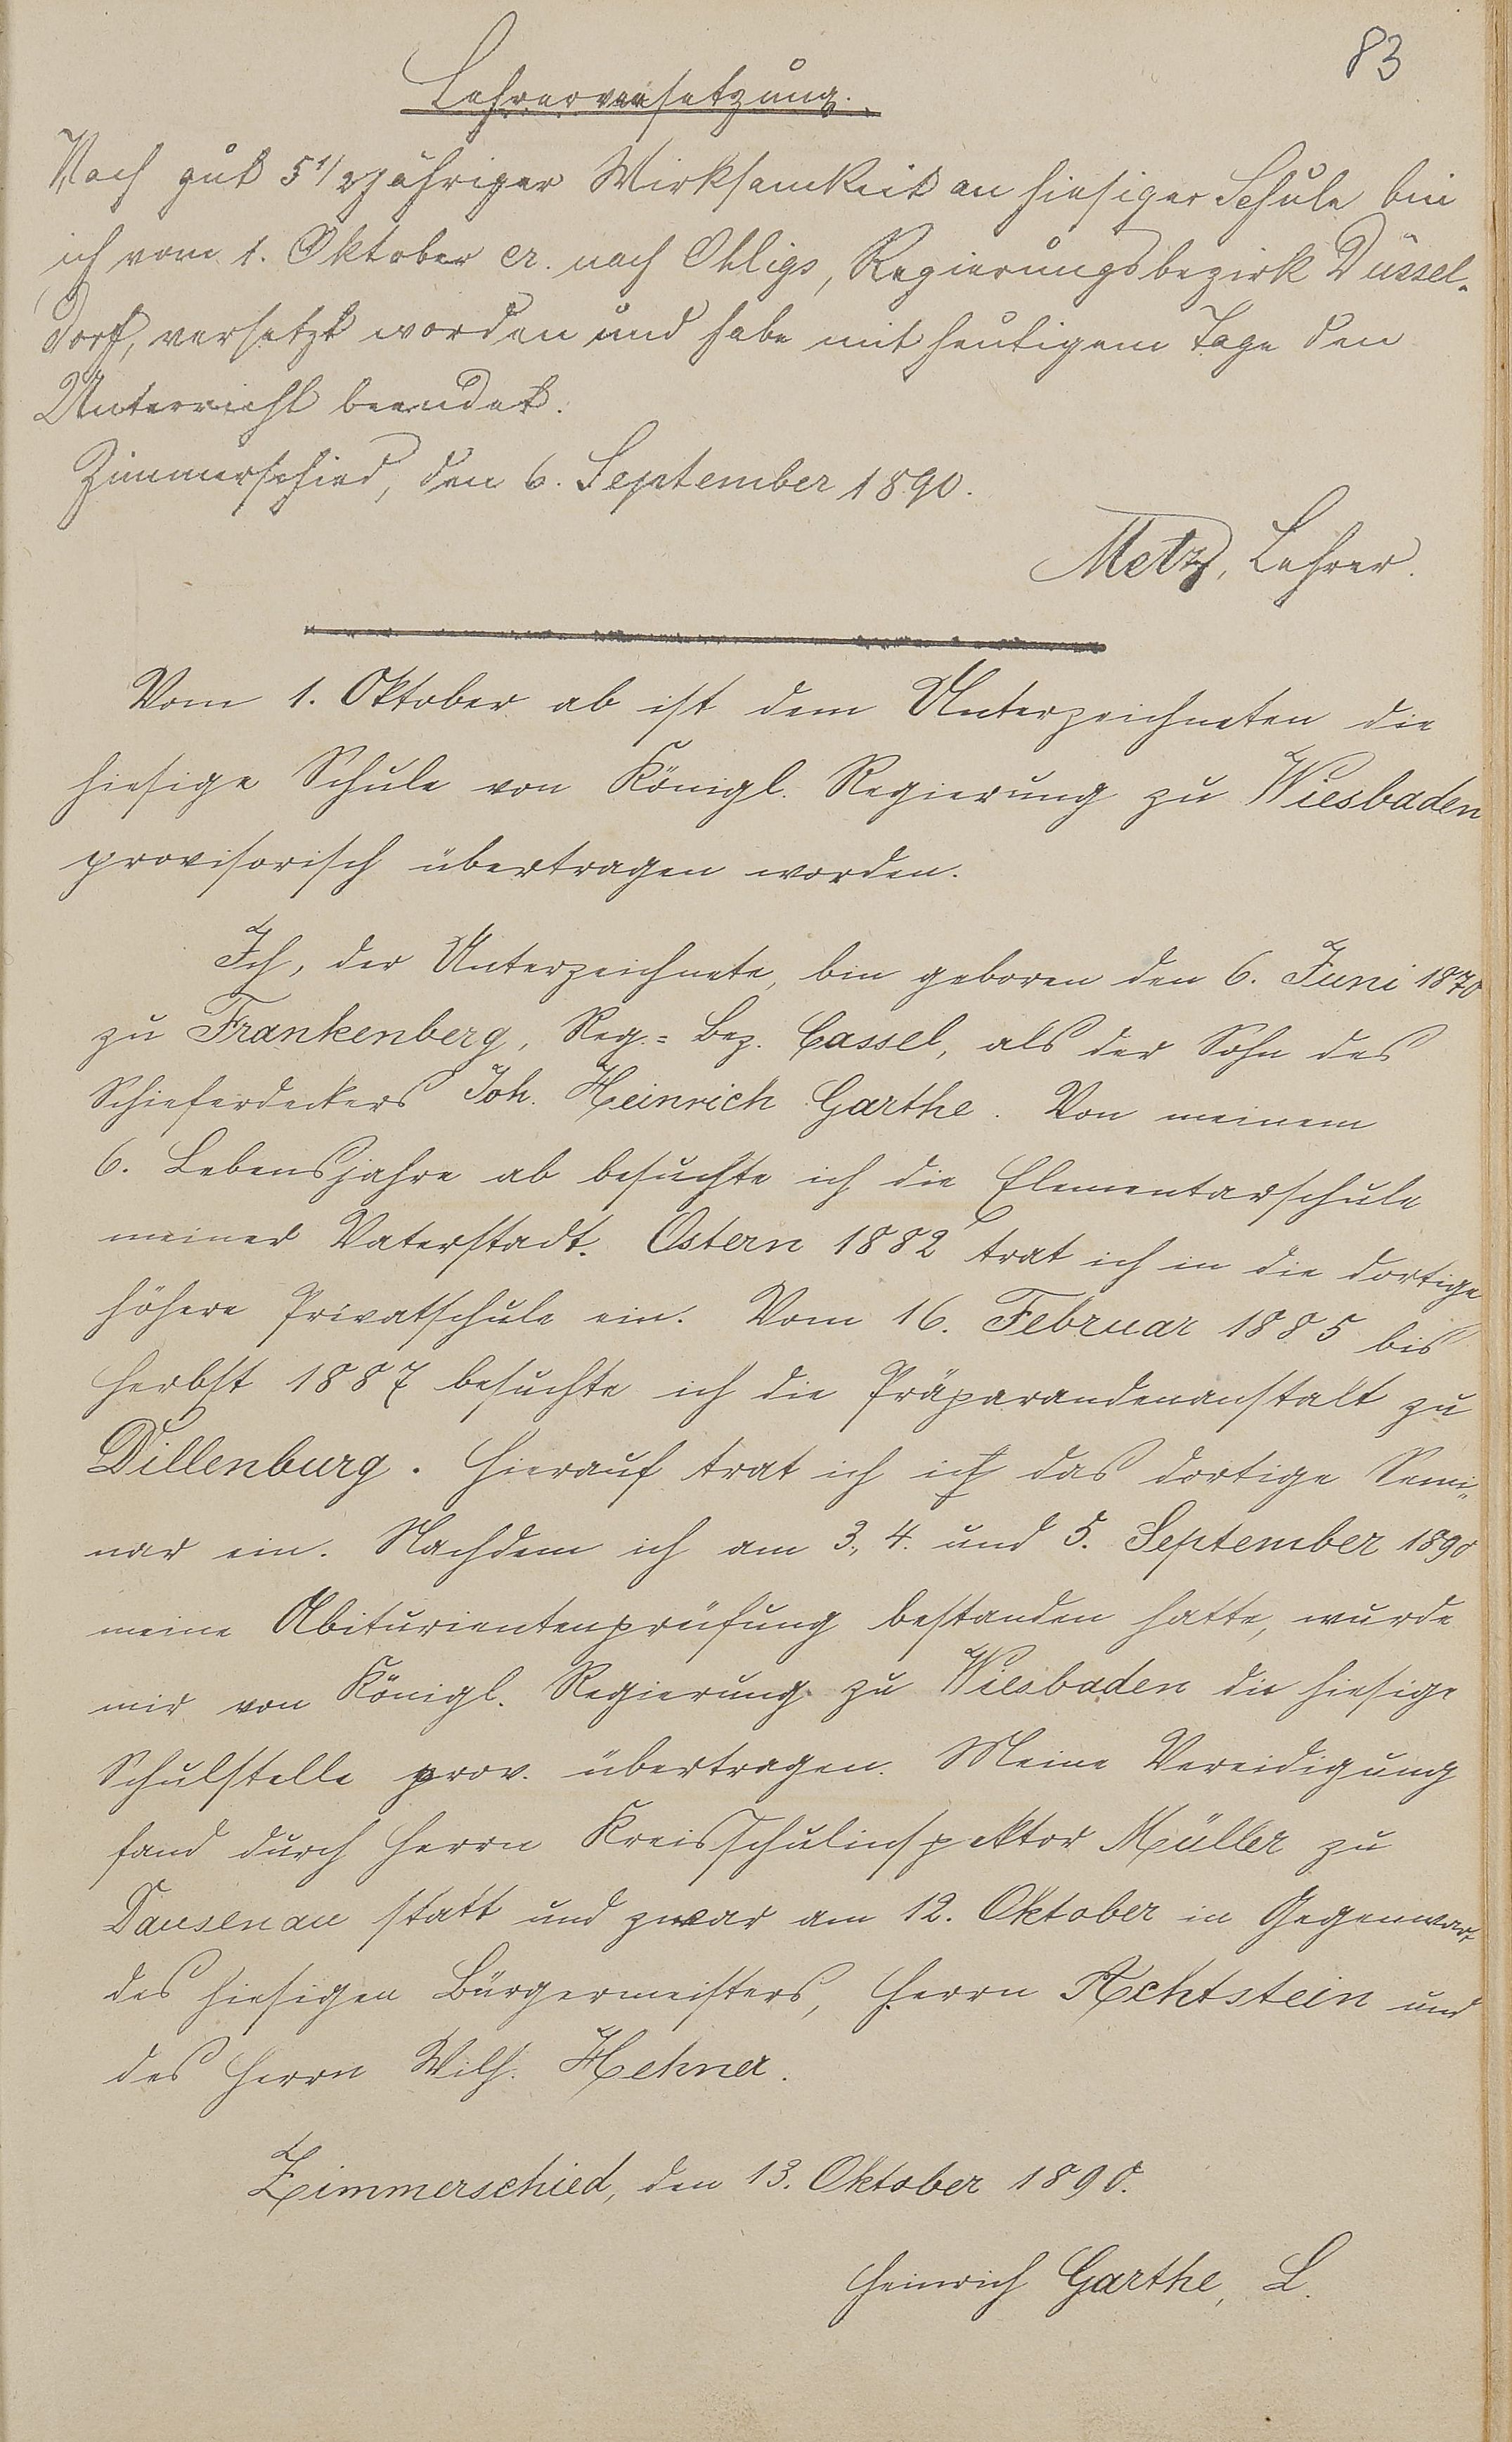 83
Lehrerversetzung.
Nach gut 5 1/2 jähriger Wirksamkeit an hiesiger Schule bin
ich vom 1. Oktober cr. nach Ohligs, Regierungsbezirk Düssel-
dorf, versetzt worden und habe mit heutigem Tage den
Unterricht beendet.
Zimmerschied, den 6. September 1890.
Metz, Lehrer.
Vom 1. Oktober ab ist dem Unterzeichneten die
hiesige Schule von Königl. Regierung zu Wiesbaden
provisorisch übertragen worden.
Ich, der Unterzeichnete, bin geboren den 6. Juni 1870
zu Frankenberg, Reg.=Bez. Cassel, als der Sohn des
Schieferdeckers Joh. Heinrich Garthe. Von meinem
6. Lebensjahre ab besuchte ich die Elementarschule
meiner Vaterstadt. Ostern 1882 trat ich in die dortige
höhere Privatschule ein. Vom 16. Februar 1885 bis
Herbst 1887 besuchte ich die Präparandenanstalt zu
Dillenburg. Hierauf trat ich in das dortige Semi-
nar ein. Nachdem ich am 3., 4. und 5. September 1890
meine Abiturientenprüfung bestanden hatte, wurde
mir von Königl. Regierung zu Wiesbaden die hiesige
Schulstelle prov. übertragen. Meine Vereidigung
fand durch Herrn Kreisschulinspektor Müller zu
Dausenau statt und zwar am 12. Oktober in Gegenwart
des hiesigen Bürgermeisters, Herrn Achtstein und
des Herrn Wilh. Hehner.
Zimmerschied, den 13. Oktober 1890.
Heinrich Garthe, L.